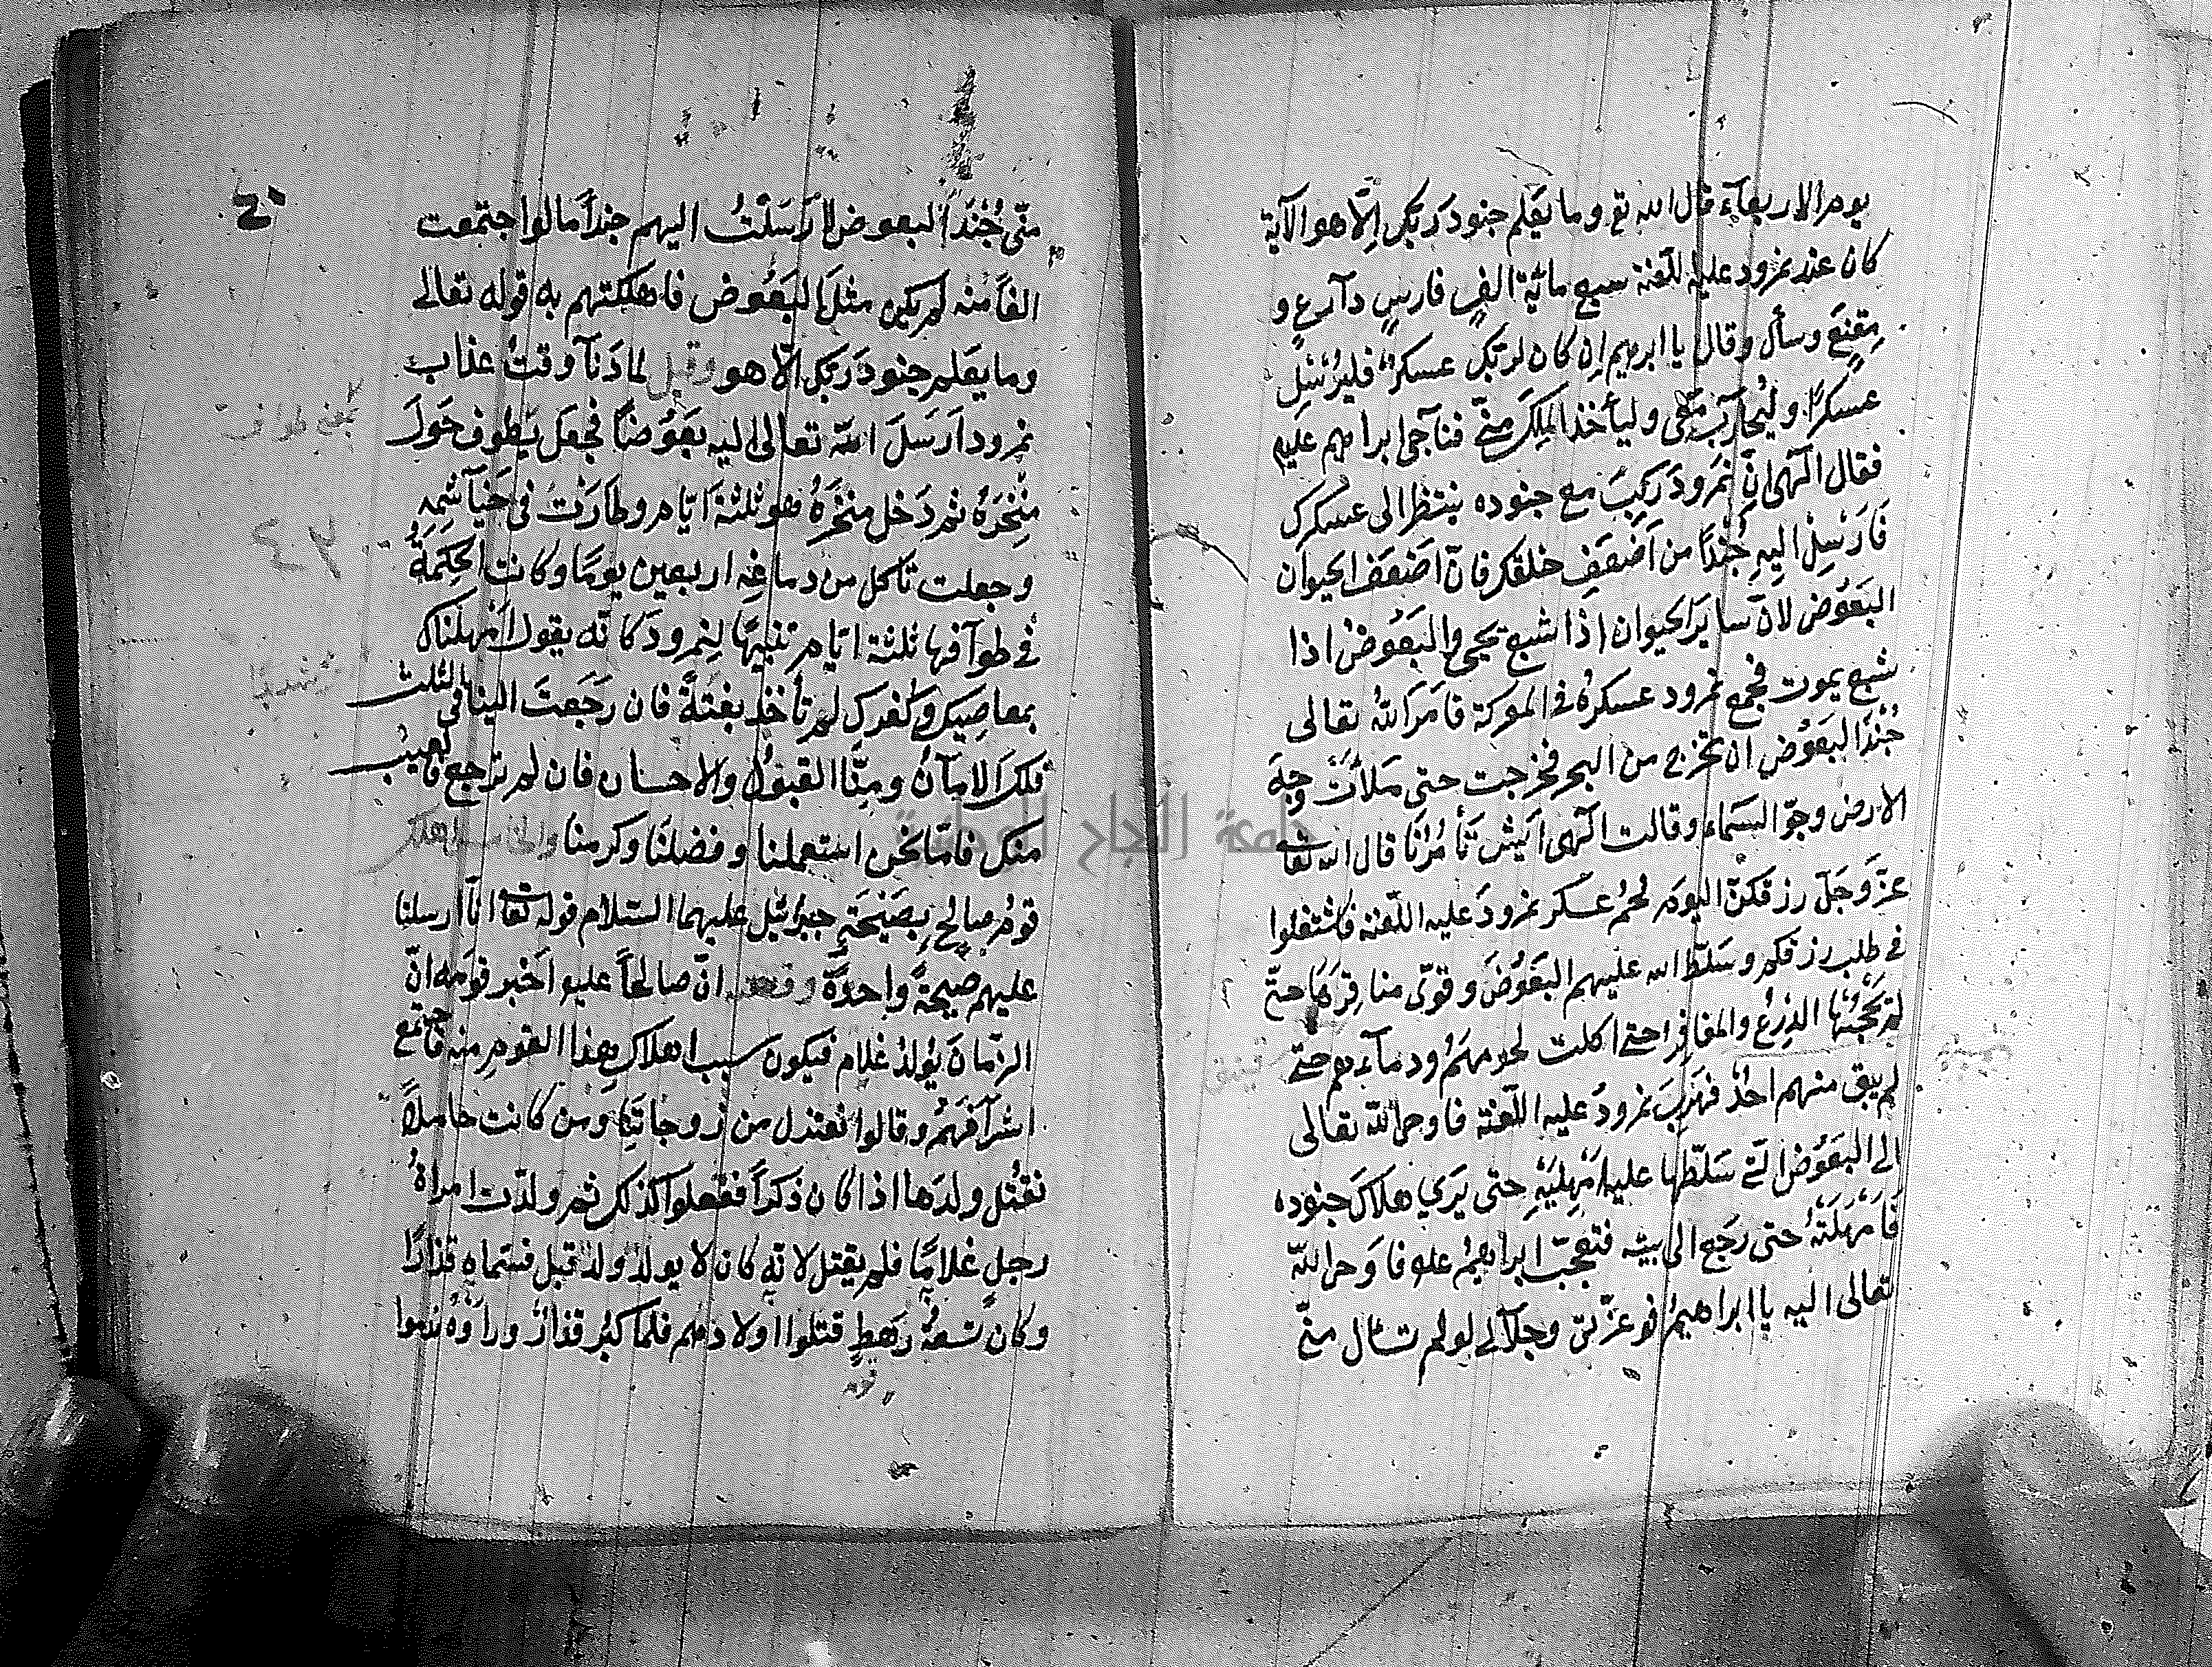 يوم الاربعآء قال الله تع وما يعلم جنود ربك الّا هو الآية
كان عند نمرود عليه اللّعنة سبع مائة الف فارس دآرع و
مقنع وسأل وقال يا ابرهيم ان كان لربك عسكر فليرسل
عسكرًا وليحارب معى وليأخذ الملك منّى فناجى ابراهيم عليم
فقال الٓهى انّ نمرود ركب مع جنوده ينتظر الى عسكرك
فارسل اليه جُندًا من اضعف خلقك فانّ اضعف الحيوان
البعوض لانّ ساير الحيوان اذا شبع يحيى والبعوض اذا
شبع يموت فجمع نمرود عسكره فى المعركة فامر الله تعالى
جُند البعوض ان تخرج من البحر فخرجت حتى ملأت وجه
الارض وجوّ السماء وقالت الٓهى ايش تأمرنا قال الله تعا
عزّ وجلّ رزقكنّ اليوم لحم عسكر نمرود عليه اللّعنة فاشتغلوا
فى طلب رزقكم وسلّط الله عليهم البعوض وقوّى مناقرها حتّى
لم تحجبها الدرع والمغافر حتى اكلت لحومهم ودمآءهم حتّى
لم يبق منهم احد فهرب نمرود عليه اللّعنة فاوحى الله تعالى
الى البعوض الّتى سلّطها عليه امهليه حتى يرى هلاك جنوده
فامهلته حتى رجع الى بيته فتعجّب ابراهيم علو فاوحى الله
تعالى اليه يا ابراهيم فو عزّتى وجلآلى لو لم تسأل منّى
منّى جُند البعوض لارسلت اليهم جندًا ما لو اجتمعت
الفًا منه لم يكن مثل البعوض فاهلكتهم به قوله تعالى
وما يعلم جنود ربك الّا هو وقيل لما دنآ وقت عذاب
نمرود ارسل الله تعالى اليه بعوضًا فجعل يطوف حول
منخره ثم دخل منخره هو ثلثة ايّام وطارت فى خياشمه
وجعلت تاكل من دماغه اربعين يومًا وكانت الحكمة
فى طوآفها ثلثة ايّام تنبيهًا لنمرود كانّه يقول امهلناك
بمعاصيك وكفرك لم تأخذ بغتة فان رجعت الينا فى الثلث
فلك الامآن ومنّا القبول والاحسان فان لم ترجع فالعيب
منك فامّا نحن استعملنا وفضلنا وكرمنا
قوم صالح بصيحة جبرئيل عليهما السّلام قوله تعا انّآ ارسلنا
عليهم صيحةً واحدةً انّ صالحًا عليو اخبر قومه انّ
الزّمان يولد غلام فيكون سببا هلاك هذا القوم منه فاجتمع
اشرآفهم وقالوا نعتذل من زوجاتنا ومن كانت حاملاً
نقتل ولدها اذا كان ذكرًا ففعلوا كذلك ثم ولدت امرأة
رجلٍ غلامًا فلم يقتل لانّه كان لا يولد ولد قبل فسماه قذارًا
وكان تسعة رهط قتلوا اولادهم فلما كبر قذار وراوه ندموا